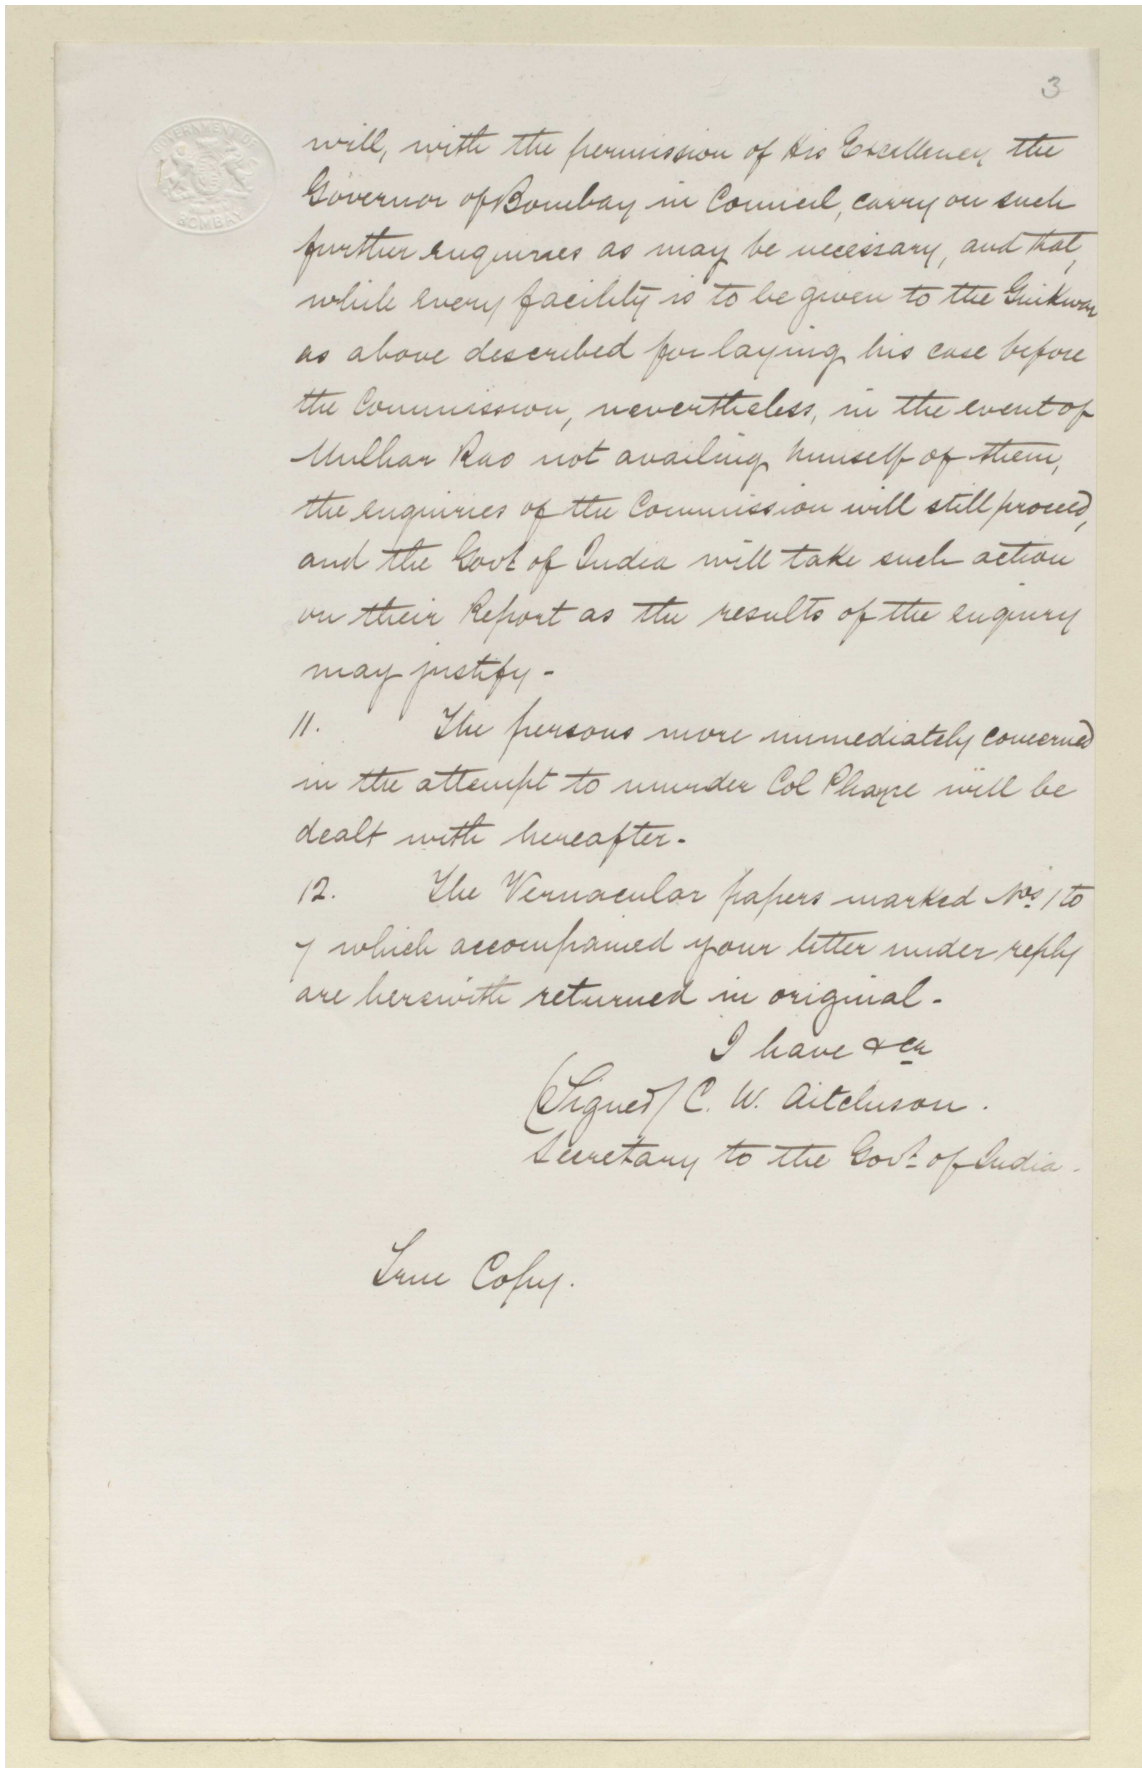 3
GOVERNMENT OF
BOMBAY
will, with the permission of His Excellency the
Governor of Bombay in Council, carry on such
further enquiries as may be necessary, and that,
while every facility is to be given to the Guikwar
as above described for laying his case before
the Commission, nevertheless, in the event of
Mulhar Rao not availing himself of them,
the enquiries of the Commission will still proceed,
and the Govt of India will take such action
on their Report as the results of the enquiry
may justify -
11. The persons more immediately concerned
in the attempt to murder Col Phayre will be
dealt with hereafter -
12. The Vernacular papers marked Nos 1 to
7 which accompanied your letter under reply
are herewith returned in original -
I have &ca
(Signed) C. W. Aitchison.
Secretary to the Govt. of India.
True Copy.